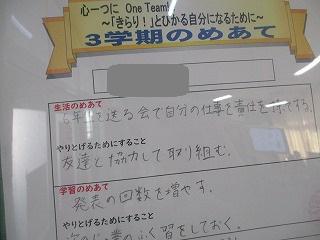 心一つに One Team!
~「きらり!」とひかる自分になるために~
3学期のめあて
生活のめあて
6年生を送る会で自分の仕事を責任を持ってする。
やりとげるためにすること
友達と協力して取り組む。
学習のめあて
発表の回数を増やす。
やりとげるためにすること
ふく習をしておく。